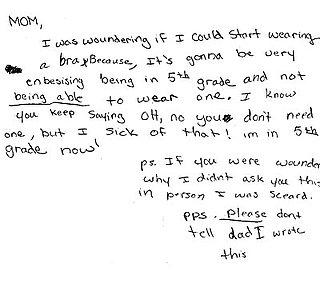 MOM,
I was woundering if I could start wearing
a bra? Because, It's gonna be very
enbesising being in 5th grade and not
being able to wear one. I know
you keep saying Oh, no you don't need
one, but I sick of that! im in 5th
grade now!
ps. If you were wounder
why I didnt ask you this
in person I was sceard.
pps. please dont
tell dad I wrote
this